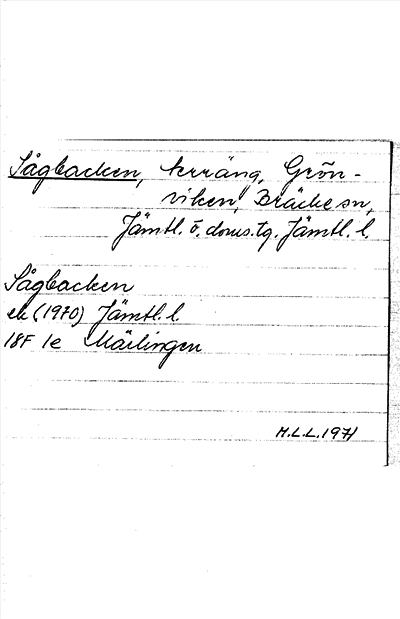 Sågbacken, terräng, Grön-
viken, Bräcke sn,
Jämtl. ö. doms. tg. Jämtl. l.
Sågbacken
ek (1970) Jämtl. l.
18F 1e Märlingen
H.L.L. 1971